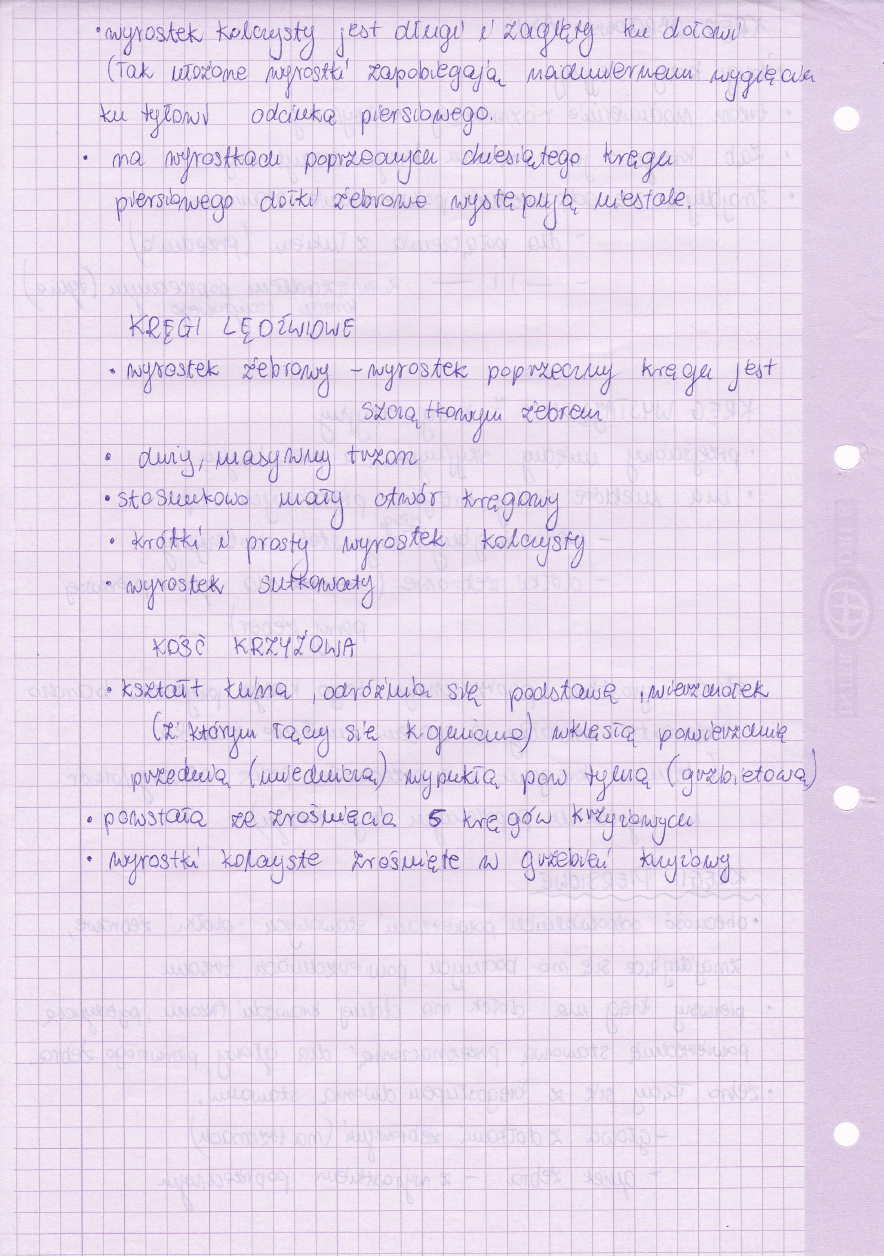 • wyrostek kolczysty jest długi i zagięty ku dołowi
(Tak ułożone wyrostki zapobiegają nadmiernemu wygięciu
ku tyłowi odcinka piersiowego.
• na wyrostkach poprzecznych dziesiątego kręgu
piersiowego dołki żebrowe występują niestale.
KRĘGI LĘDŹWIOWE
• wyrostek żebrowy – wyrostek poprzeczny kręgu jest
szczątkowym żebrem
• duży, masywny trzon
• stosunkowo mały otwór kręgowy
• krótki i prosty wyrostek kolczysty
• wyrostek sutkowaty
KOŚĆ KRZYŻOWA
• kształt klina, odróżnia się podstawę, wierzchołek
(z którym łączy się k. guziczna) wklęsłą powierzchnią
przednią (miedniczą) wypukłą pow tylną (grzbietową)
• powstała ze zrośnięcia 5 kręgów krzyżowych
• wyrostki kolczyste zrośnięte w grzebień krzyżowy